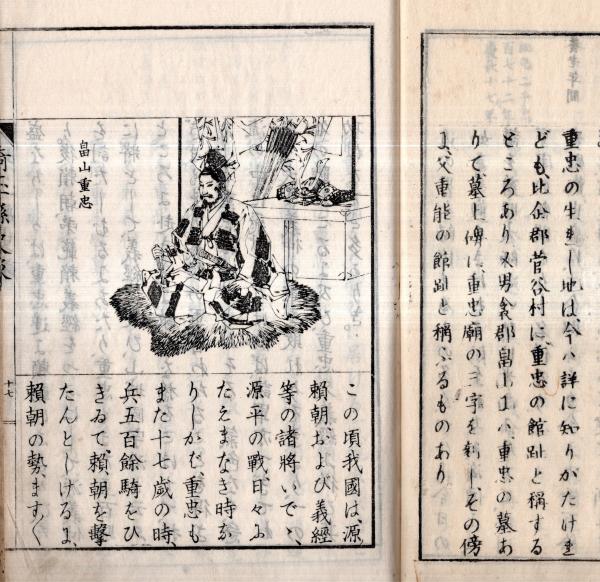 重忠の生れし地は、今ハ詳に知りがたけれ
ども、比企郡菅谷村に、重忠の館趾と稱する
ところあり又男衾郡畠山にハ、重忠の墓あ
りて、墓上碑に、重忠廟の三字を刻しその傍
に、父重能の館趾と稱へるものあり
畠山重忠
この頃我國は、源
頼朝、および義經
等の諸將いでゝ、
源平の戰、日々に
たえまなき時な
りしかば、重忠も
また十七歳の時、
兵五百餘騎をひ
きゐて、頼朝を擊
たんとしけるに、
頼朝の勢、ますく
十七